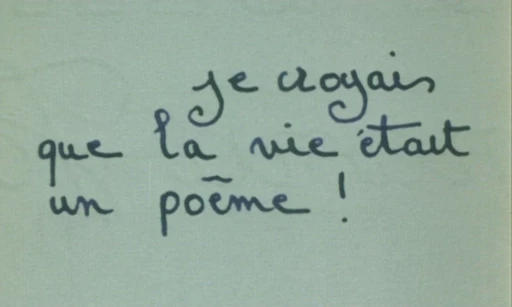 je croyais
que la vie était
un poême !